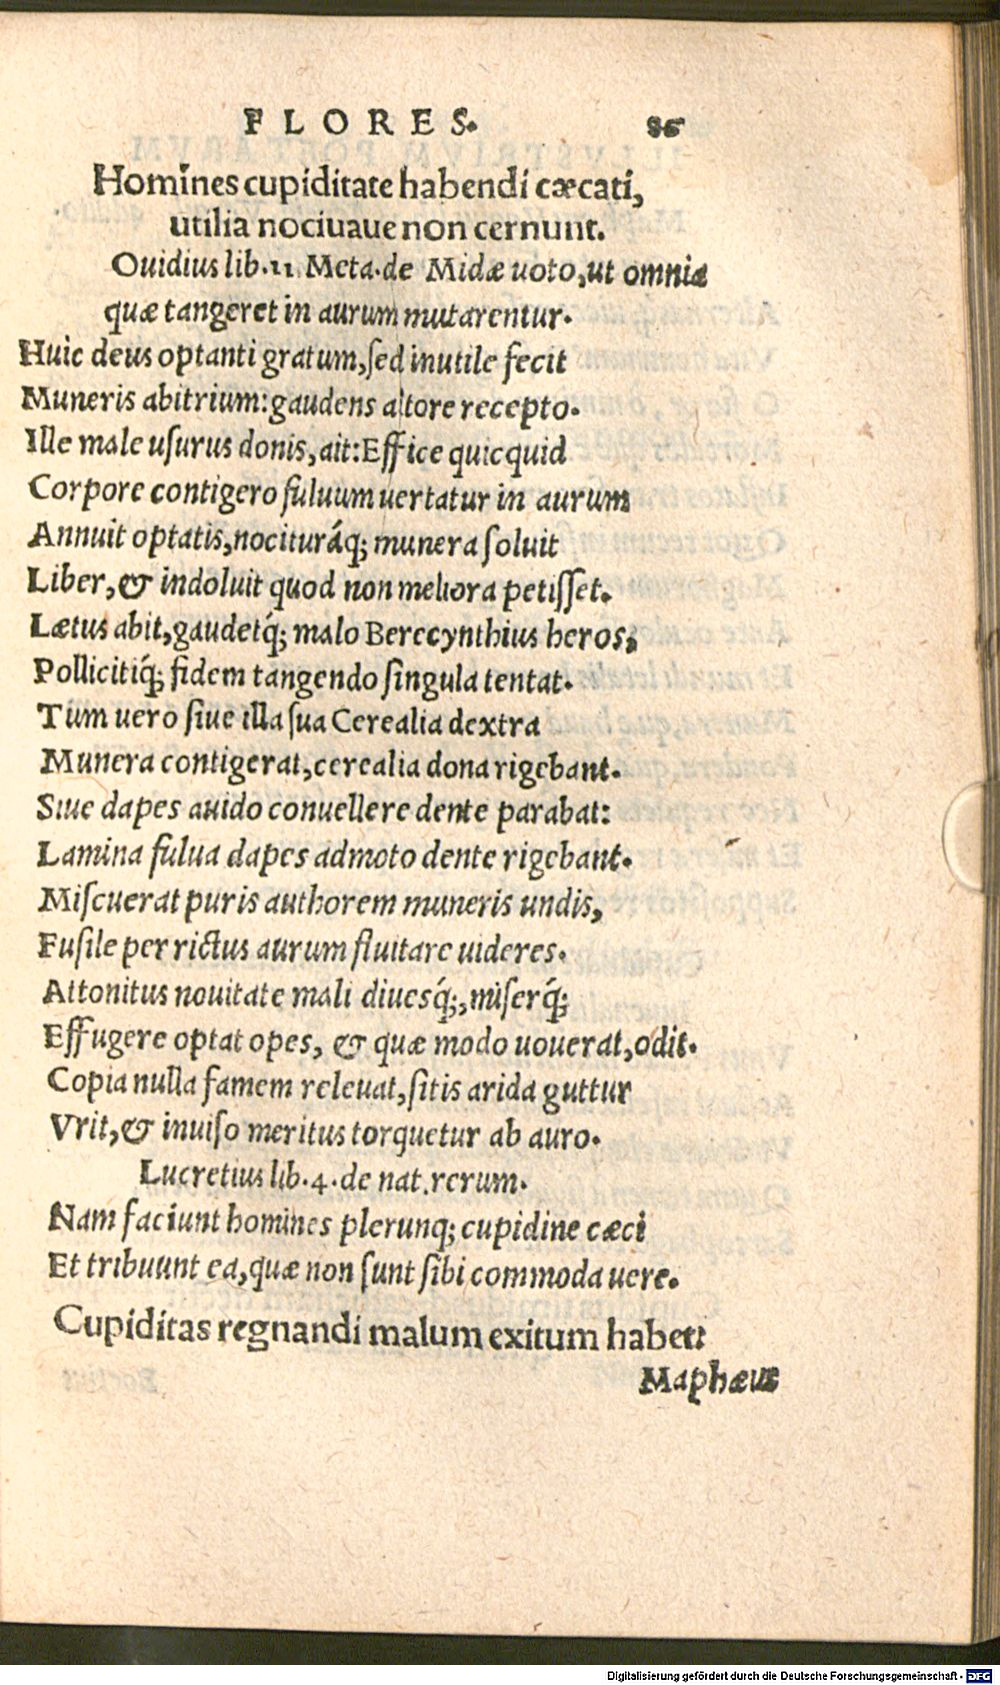 FLORES. 86
Homines cupiditate habendi cæcati,
utilia nociuaue non cernunt.
Ouidius lib.11. Meta. de Midæ uoto, ut omnia
quæ tangeret in aurum mutarentur.
Huic deus optanti gratum, ſed inutile fecit
Muneris abitrium: gaudens altore recepto.
Ille male uſurus donis, ait: Effice quicquid
Corpore contigero fuluum uertatur in aurum
Annuit optatis, nocituráq; munera ſoluit
Liber, & indoluit quod non meliora petiſſet.
Lætus abit, gaudetq́; malo Berecynthius heros,
Pollicitiq́; fidem tangendo ſingula tentat.
Tum uero ſiue illa ſua Cerealia dextra
Munera contigerat, cerealia dona rigebant.
Siue dapes auido conuellere dente parabat:
Lamina fulua dapes admoto dente rigebant.
Miſcuerat puris authorem muneris undis,
Fuſile per rictus aurum fluitare uideres.
Attonitus nouitate mali diuesq́;, miſerq́;
Effugere optat opes, & quæ modo uouerat, odit.
Copia nulla famem releuat, ſitis arida guttur
Vrit, & inuiſo meritus torquetur ab auro.
Lucretius lib.4. de nat. rerum.
Nam faciunt homines plerunq; cupidine cæci
Et tribuunt ea, quæ non ſunt ſibi commoda uere.
Cupiditas regnandi malum exitum habet:
Maphæus
Digitalisierung gefördert durch die Deutsche Forschungsgemeinschaft - DFG